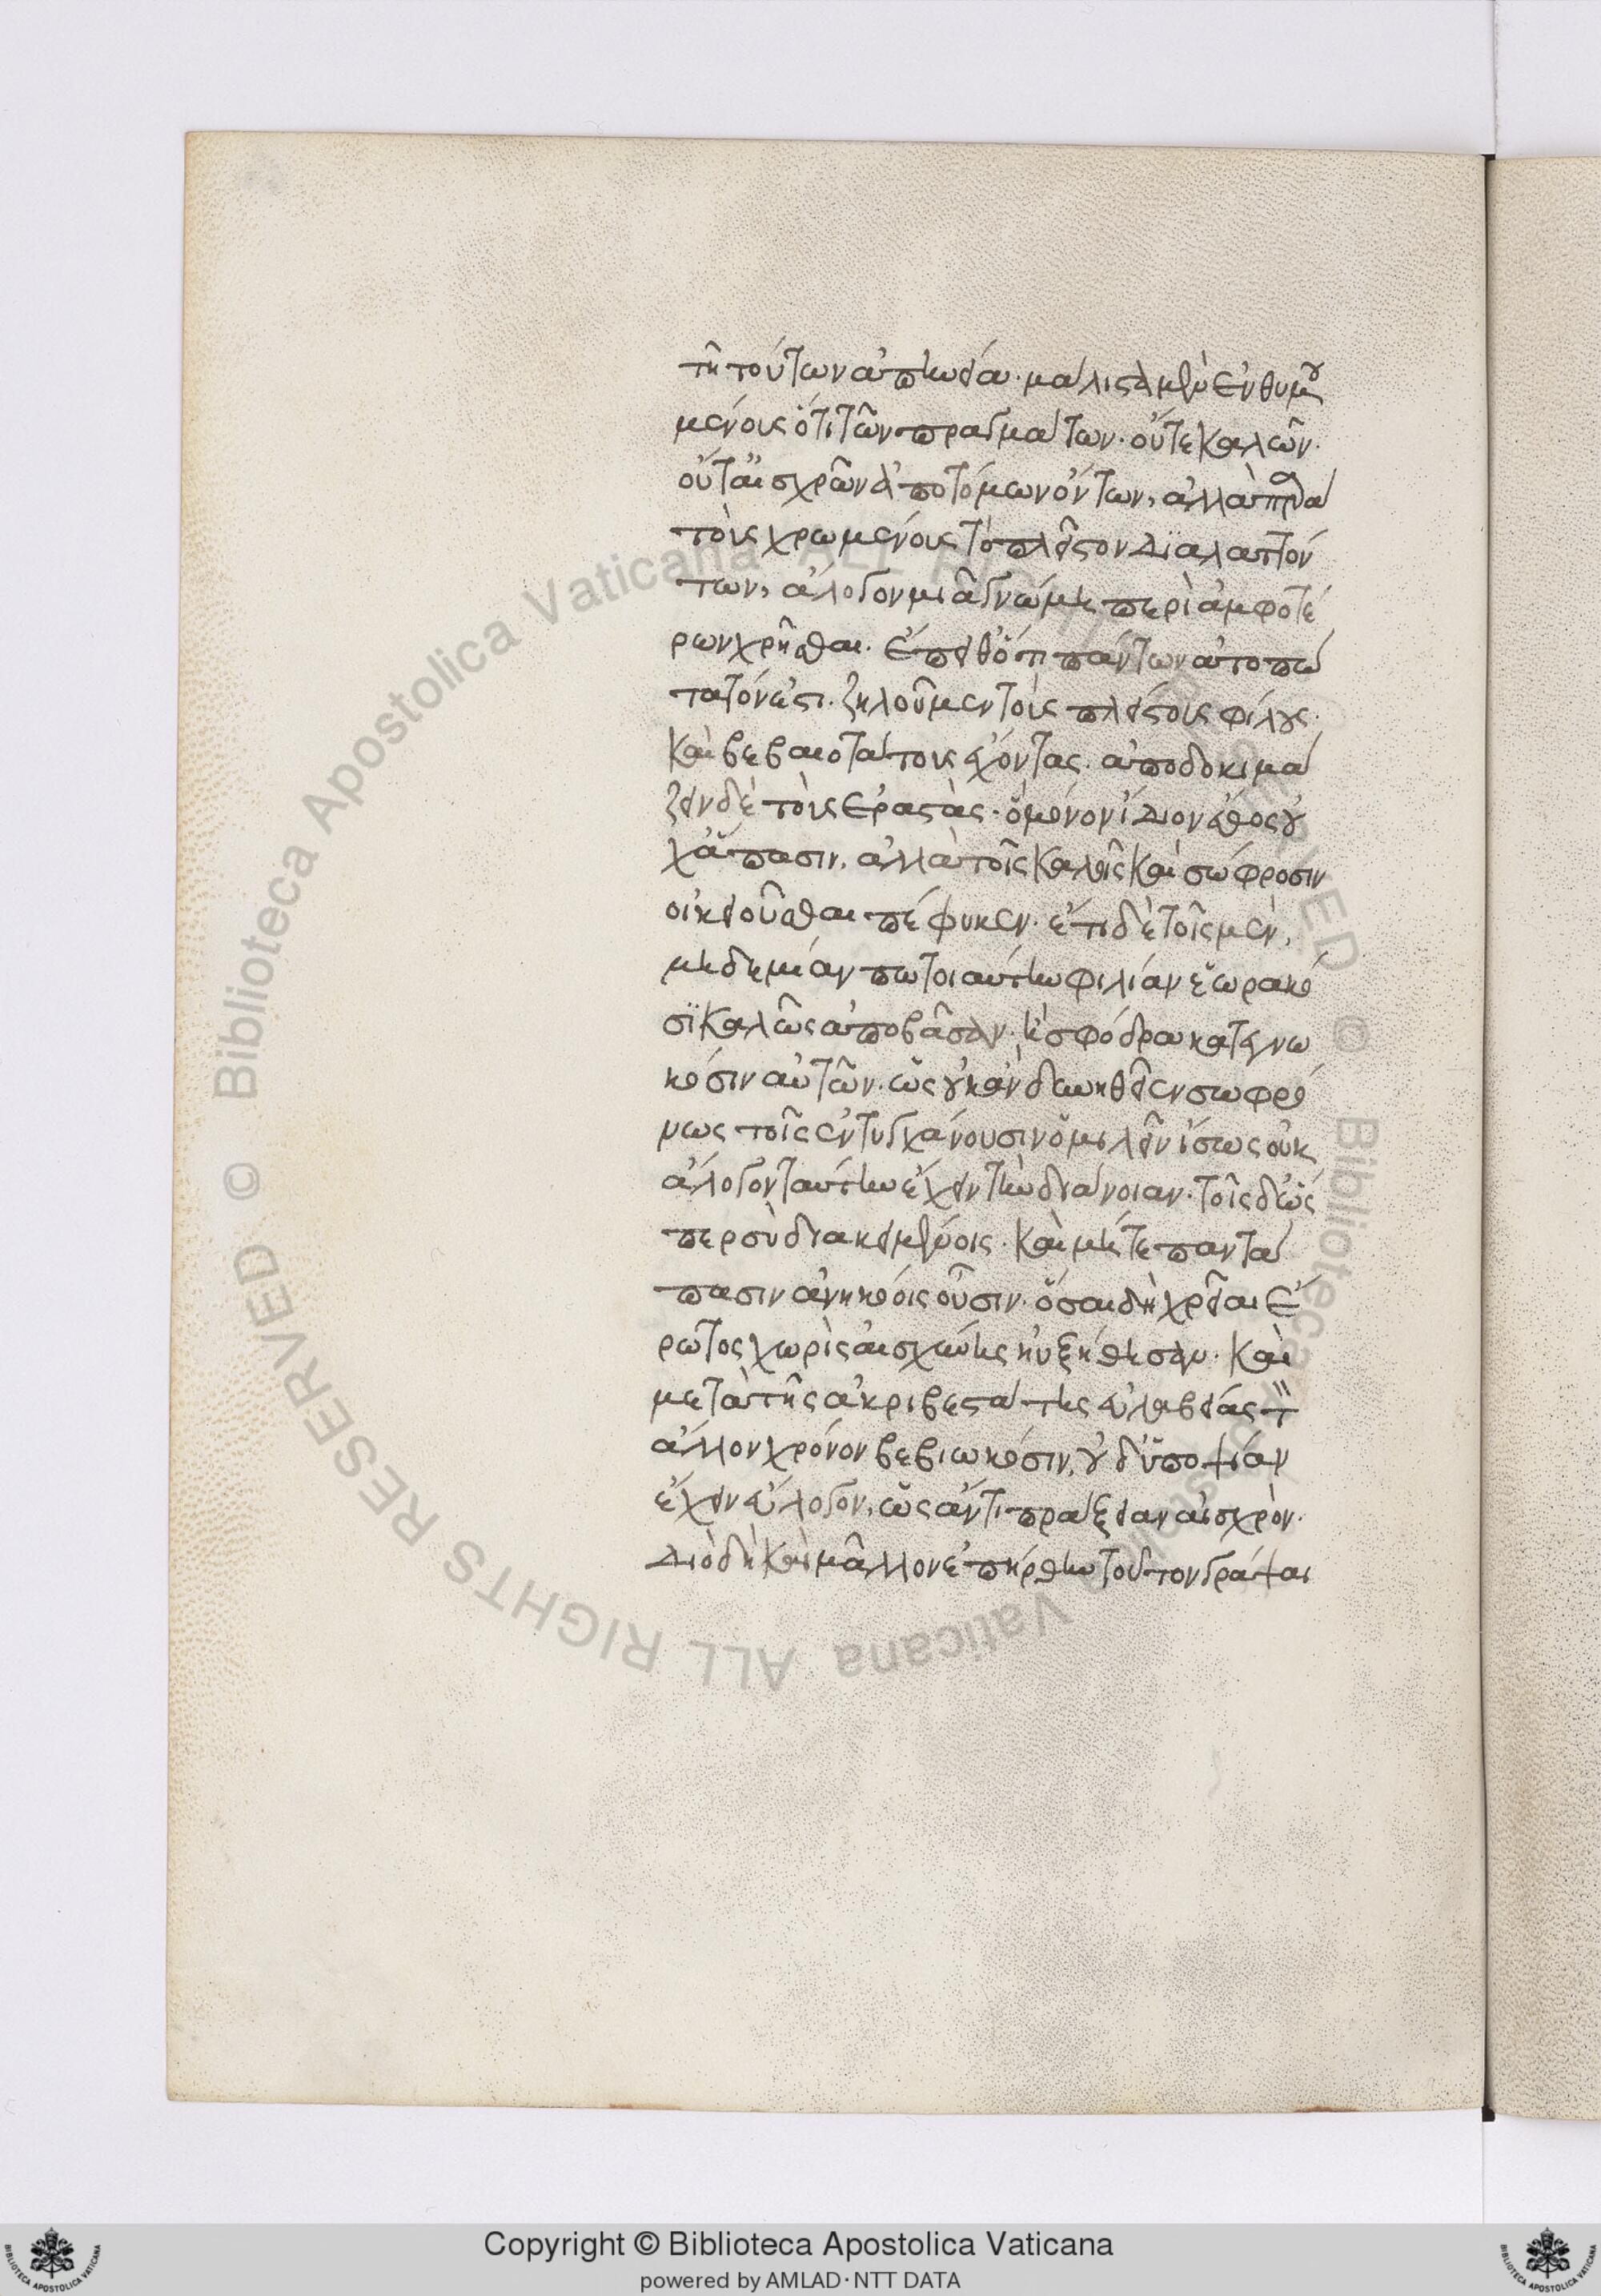 τῆ τούτων ἀπηνεία· μάλιστα μὲν ἐνθυμου
μένους ὅτι τῶν πραγμάτων· οὔτε καλῶν·
οὔτ' αἰσχρῶν ἀποτόμων ὄντων, ἀλλὰ παρὰ
τοὺς χρωμένους τὸ πλεῖστον διαλαττόν
των, ἄλογον μιᾶ γνώμη περὶ ἀμφοτέ
ρων χρῆσθαι· ἔπειθ' ὅτι πάντων ἀτοπώ
τατόν ἐστι· ζηλοῦμεν τοὺς πλείστους φίλους·
καὶ βεβαιοτάτους ἔχοντας· ἀποδοκιμά
ζειν δὲ τοὺς ἐραστάς· ὃ μόνον ἴδιον ἔθος οὐ
χ' ἅπασιν, ἀλλὰ τοῖς καλοῖς καὶ σώφροσιν
οἰκειοῦσθαι πέφυκεν· ἔτι δὲ τοῖς μὲν,
μηδεμίαν πω τοιαύτην φιλίαν ἑωρακό
σϊ καλῶς ἀποβᾶσαν· ἢ σφόδρα κατεγνω
κόσιν αὐτῶν· ὡς οὐκ ἂν δυνηθεῖεν σωφρό
νως τοῖς ἐντυγχάνουσιν ὁμιλεῖν ἴσως οὐκ
ἄλογον ταύτην ἔχειν τὴν διάνοιαν· τοῖς δ' ὥς
περ σὺ διακειμένοις· καὶ μήτε παντά
πασιν ἀνηκόοις οὖσιν· ὅσαι δὴ χρεῖαι ἔ
ρωτος χωρὶς αἰσχύνης ηὐξήθησαν· καὶ
μετὰ τῆς ἀκριβεστάτης εὐλαβείας τὸν
ἄλλον χρόνον βεβιωκόσιν, οὐδ' ὑποψίαν
ἔχειν εὔλογον, ὡς ἄν τι πράξειαν αἰσχρὸν·
Διὸ δὴ καὶ μᾶλλον ἐπήρθην τοῦτον γράψαι